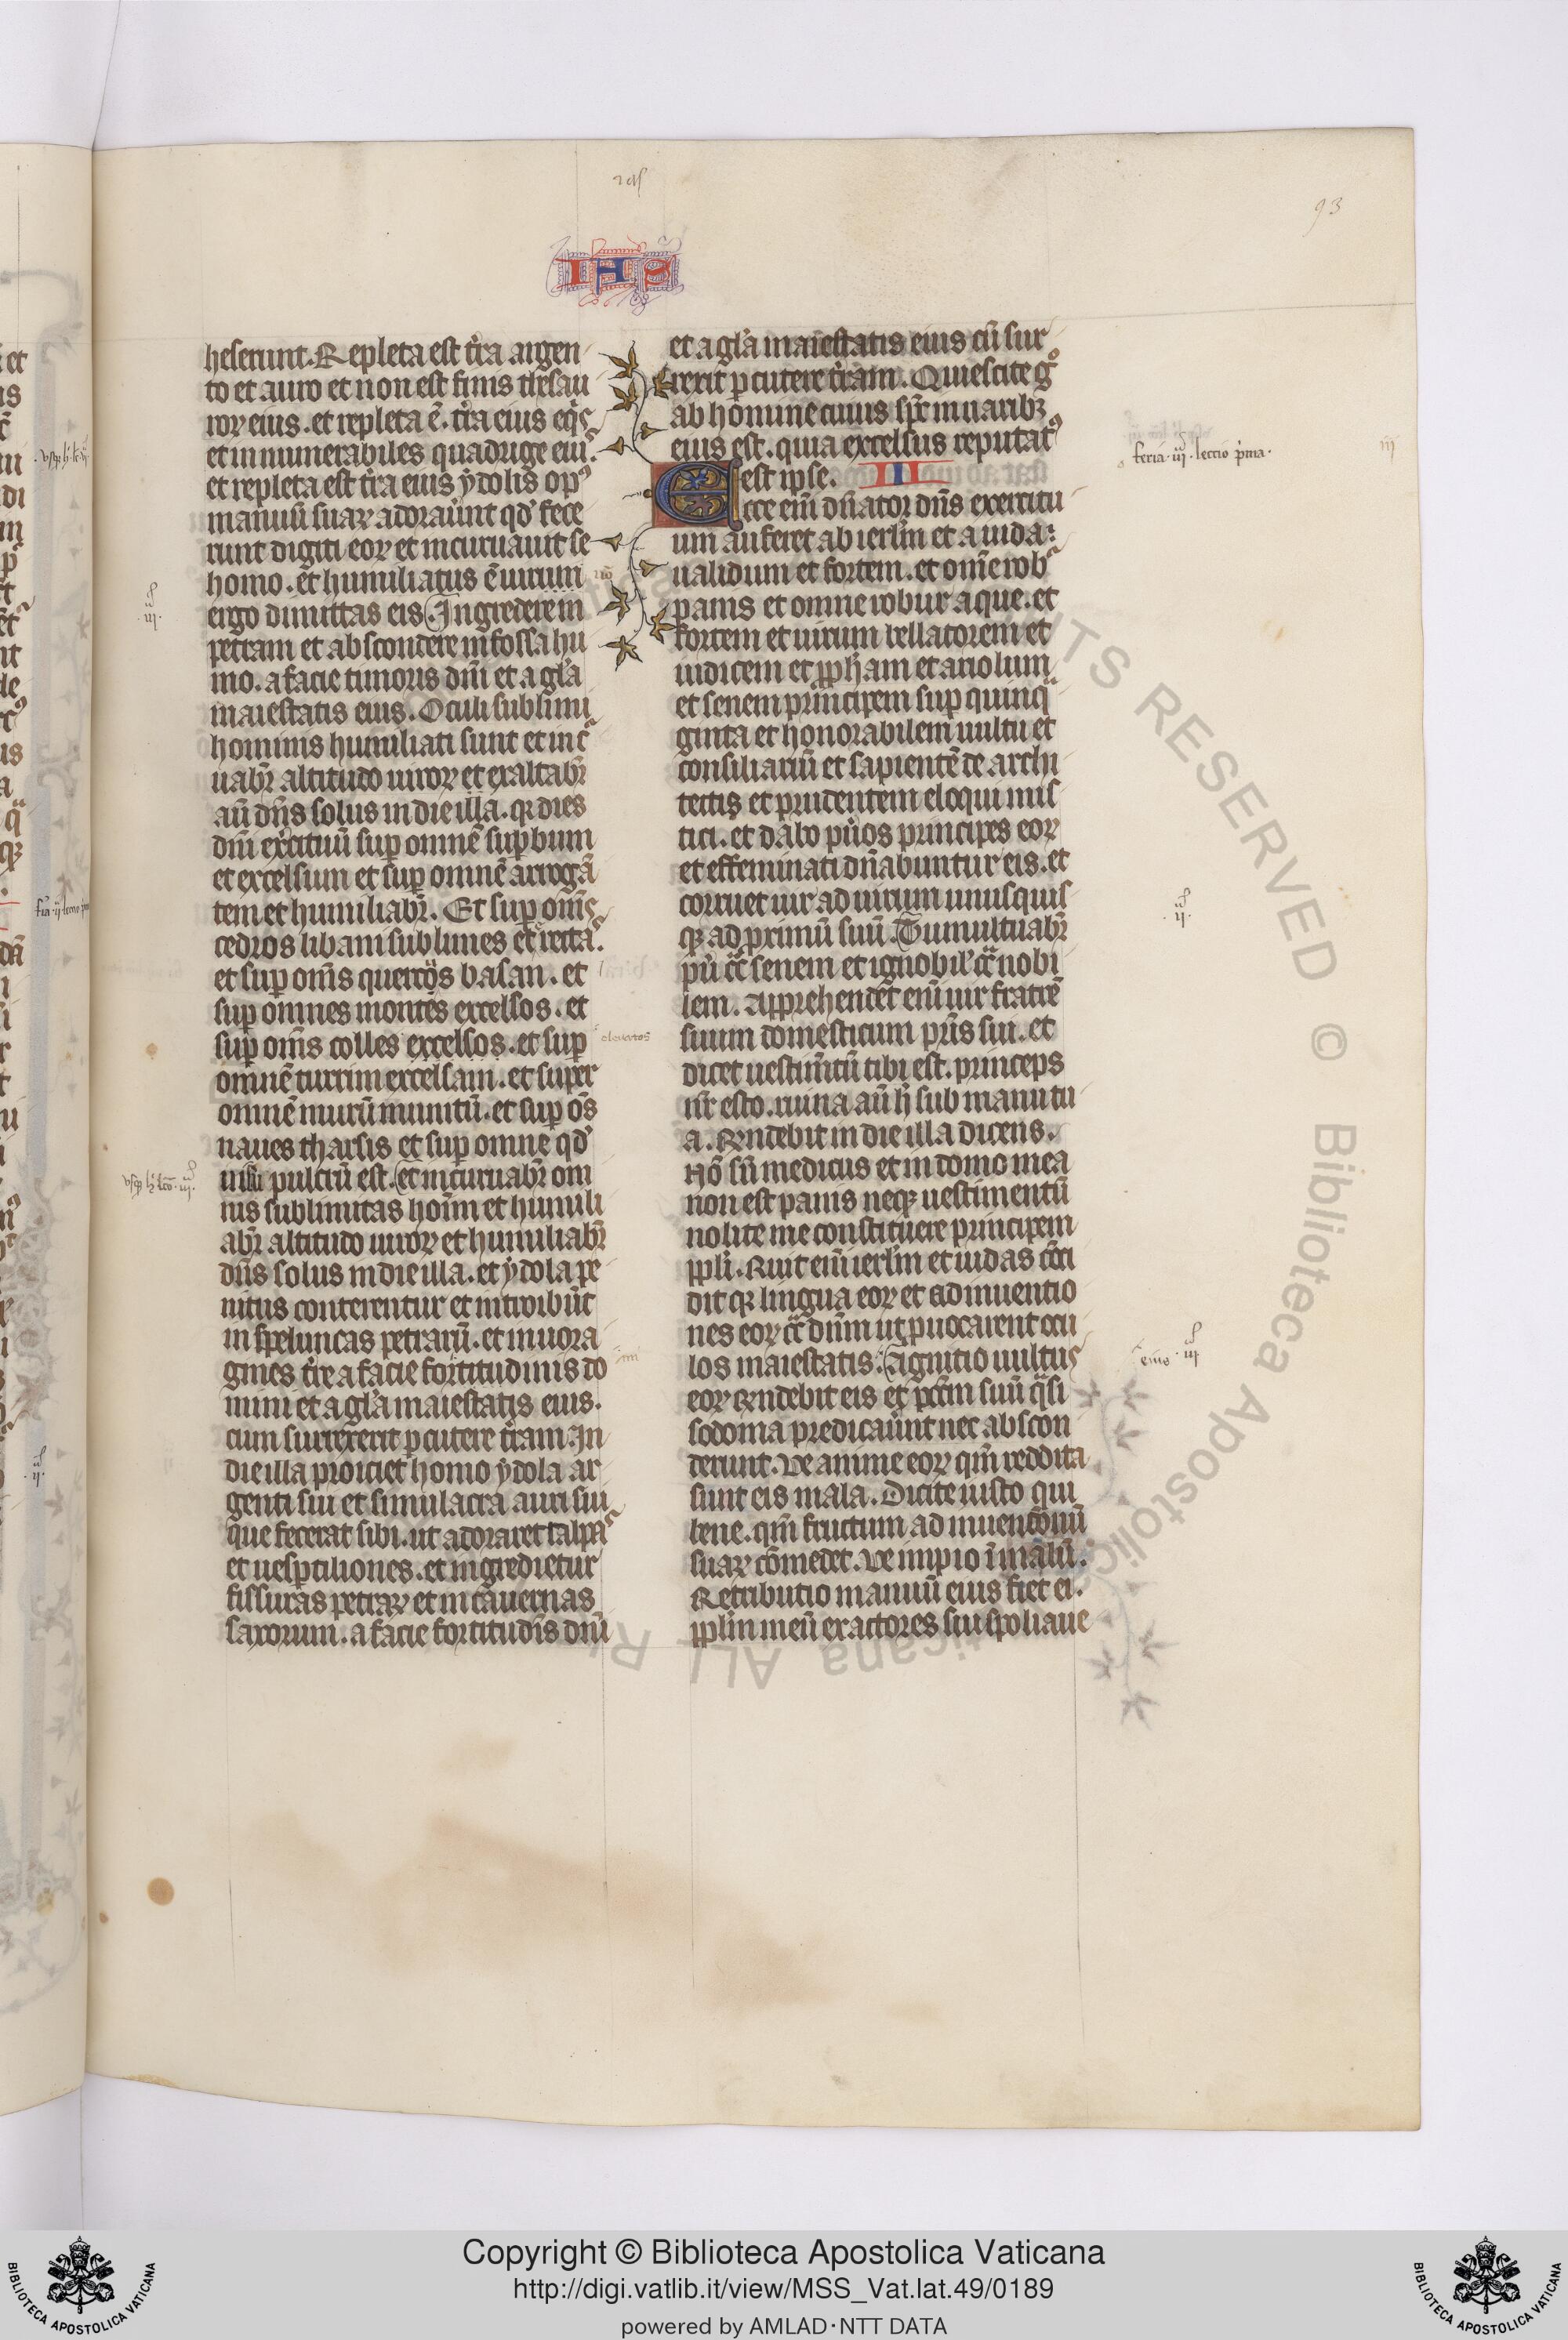 93
IHS
heserunt. Repleta est tr̃a argen
to et auro et non est finis thesau
roꝝ eius. et repleta ẽ. tr̃a eius eq̃s
et innumerabiles quadrige eiꝰ.
et repleta est tr̃a eius ydolis opꝰ
manuũ suaꝝ adorauͬnt qđ fece
runt digiti eoꝝ et incuruauit se
homo. et humiliatus ẽ uirum
ergo dimittas eis. Ingredere in
petram et abscondere in fossa hu
mo. a facie timoris dñi et a gľa
maiestatis eius. Oculi sublimi
hominis humiliati sunt et incͬ
uabr̃ altitudo uiroꝝ et exaltabr̃
aũ dñs solus in die illa. qꝛ dies
dñi exc̾ituũ suꝑ omnẽ suꝑbum
et excelsum et suꝑ omnẽ arrogã
tem et humiliabr̃. Et suꝑ om̃s
cedros libani sublimes et erecta.
et suꝑ om̃s quercos basan. et
suꝑ omnes montes excelsos. et
suꝑ om̃s colles excelsos. et suꝑ
elevatos
omnẽ turrim excelsam. et super
omnẽ murũ munitũ. et suꝑ oс̃s
naues tharsis et suꝑ omne qđ
uisu pulcrũ est. et incuruabr̃ om
nis sublimitas hoĩm et humili
abr̃ altitudo uiroꝝ et humiliabr̃
dñs solus in die illa. et ydola pe
nitus conterentur et introibũt
in speluncas petrarũ. et in uora
gines tr̃e a facie fortitudinis do
mini et a gľa maiestatis eius.
cum surrexerit ꝑcutere tr̃am. In
die illa proiciet homo ydola ar
genti sui et simulacra auri sui
que fecerat sibi. ut adoraret talpas
et uesꝑtiliones. et ingredietur
fissuras petraꝝ et in cauernas
saxorum. a facie fortitudĩs dñi
et a gľa maiestatis eius cũ sur
rexit ꝑcutere tr̃am. Quiescite gͦ
ab homine cuius sp̃c in naribꝫ
eius est. quia excelsus reputatꝰ
est ipse. III
feria. iij. leccio pͥma.
iij
Ecce eni᷒ dñator dñs exercitu
um auferet ab ierľm et a iuda:
ualidum et fortem. et om̃e robͬ
panis et omne robur aque. et
fortem et uirum bellatorem et
iudicem et ꝓph̃am et ariolum
et senem principem suꝑ quinq̃
ginta et honorabilem uultu et
consiliariũ et sapientẽ de archi
tectis et prudentem eloqui mis
tici. et dabo pu̾os principes eoꝝ
et effeminati dñabuntur eis. et
corruet uir ad uirum unusquis
qꝫ ad ꝓximũ suũ. Tumultuabr̃
pu̾ cc̃ senem et ignobiľ cc̃ nobi
lem. Apprehendet eni᷒ uir fratrẽ
suum domesticum pr̃is sui. et
dicet uestimtũ tibi est. princeps
nr̃ esto. ruina aũ h̾ sub manu tu
a. Rñdebit in die illa dicens.
Nõ sũ medicus et in domo mea
non est panis neqꝫ uestimentũ
nolite me constituere principem
ppľi. Ruit eni᷒ ierľm et iudas cõci
dit qꝛ lingua eoꝝ et adinuentio
nes eoꝝ cc̃ dñm ut ꝓuocarent ocu
los maiestatis. Agnitio uultus
eoꝝ rñdebit eis et pcc̃m suũ q̃si
sodoma predicauͬnt nec abscon
derunt. Ve anime eoꝝ qm̃ reddita
sunt eis mala. Dicite iusto qm̃
bene. qm̃ fructum adinuenc̃onũ
suaꝝ cõmedet. Ve impio ĩ malũ.
Retributio manuũ eius fiet ei.
Ppľm meũ exactores sui spoliaue
© Biblioteca Apostolica Vaticana ALL RIGHTS RESERVED
Copyright © Biblioteca Apostolica Vaticana
http://digi.vatlib.it/view/MSS_Vat.lat.49/0189
powered by AMLAD·NTT DATA
BIBLIOTECA APOSTOLICA VATICANA
BIBLIOTECA APOSTOLICA VATICANA